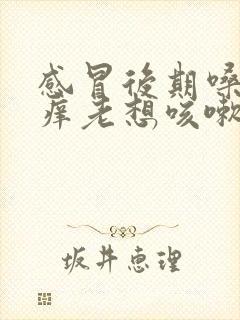 感冒後期嗓
痒老想咳嗽
坂井恵理